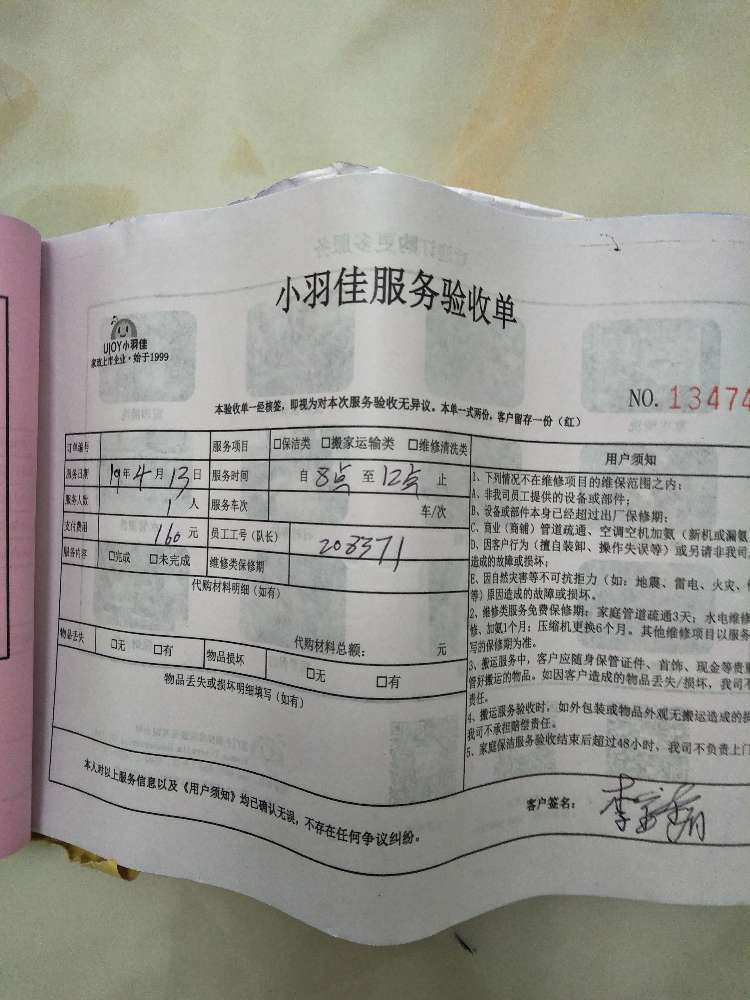 小羽佳服务验收单
UJOY小羽佳
家政上市企业·始于1999
本验收单一经核签，即视为对本次服务验收无异议。本单一式两份，客户留存一份（红）
NO. 13474
订单编号 服务项目 □保洁类 □搬家运输类 □维修清洗类
服务日期 19年4月13日 服务时间 自 8点 至 12点 止
服务人数 1人 服务车次 车/次
支付费用 160元 员工工号（队长） 208371
服务内容 □完成 □未完成 维修类保修期
代购材料明细（如有）
代购材料总额： 元
物品丢失 □无 □有 物品损坏 □无 □有
物品丢失或损坏明细填写（如有）
用户须知
1、下列情况不在维修项目的维保范围之内：
A、非我司员工提供的设备或部件；
B、设备或部件本身已经超过出厂保修期；
C、商业（商铺）管道疏通、空调空机加氨（新机或漏氨
D、因客户行为（擅自装卸、操作失误等）或另请非我司
造成的故障或损坏；
E、因自然灾害等不可抗拒力（如：地震、雷电、火灾、
等）原因造成的故障或损坏。
2、维修类服务免费保修期：家庭管道疏通3天；水电维修
修、加氨1个月；压缩机更换6个月。其他维修项目以服务
写的保修期为准。
3、搬运服务中，客户应随身保管证件、首饰、现金等贵
管好搬运的物品。如因客户造成的物品丢失/损坏，我司不
责任。
4、搬运服务验收时，如外包装或物品外观无搬运造成的
我司不承担赔偿责任。
5、家庭保洁服务验收结束后超过48小时，我司不负责上门
本人对以上服务信息以及《用户须知》均已确认无误，不存在任何争议纠纷。
客户签名：